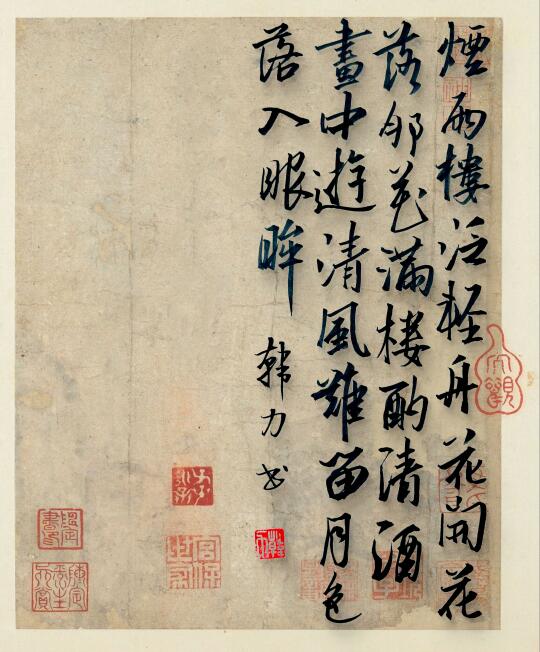 煙雨樓泛輕舟花開花
落卻花滿樓酌清酒
畫中遊清風難留月色
落入眼眸
韓力书
大觀